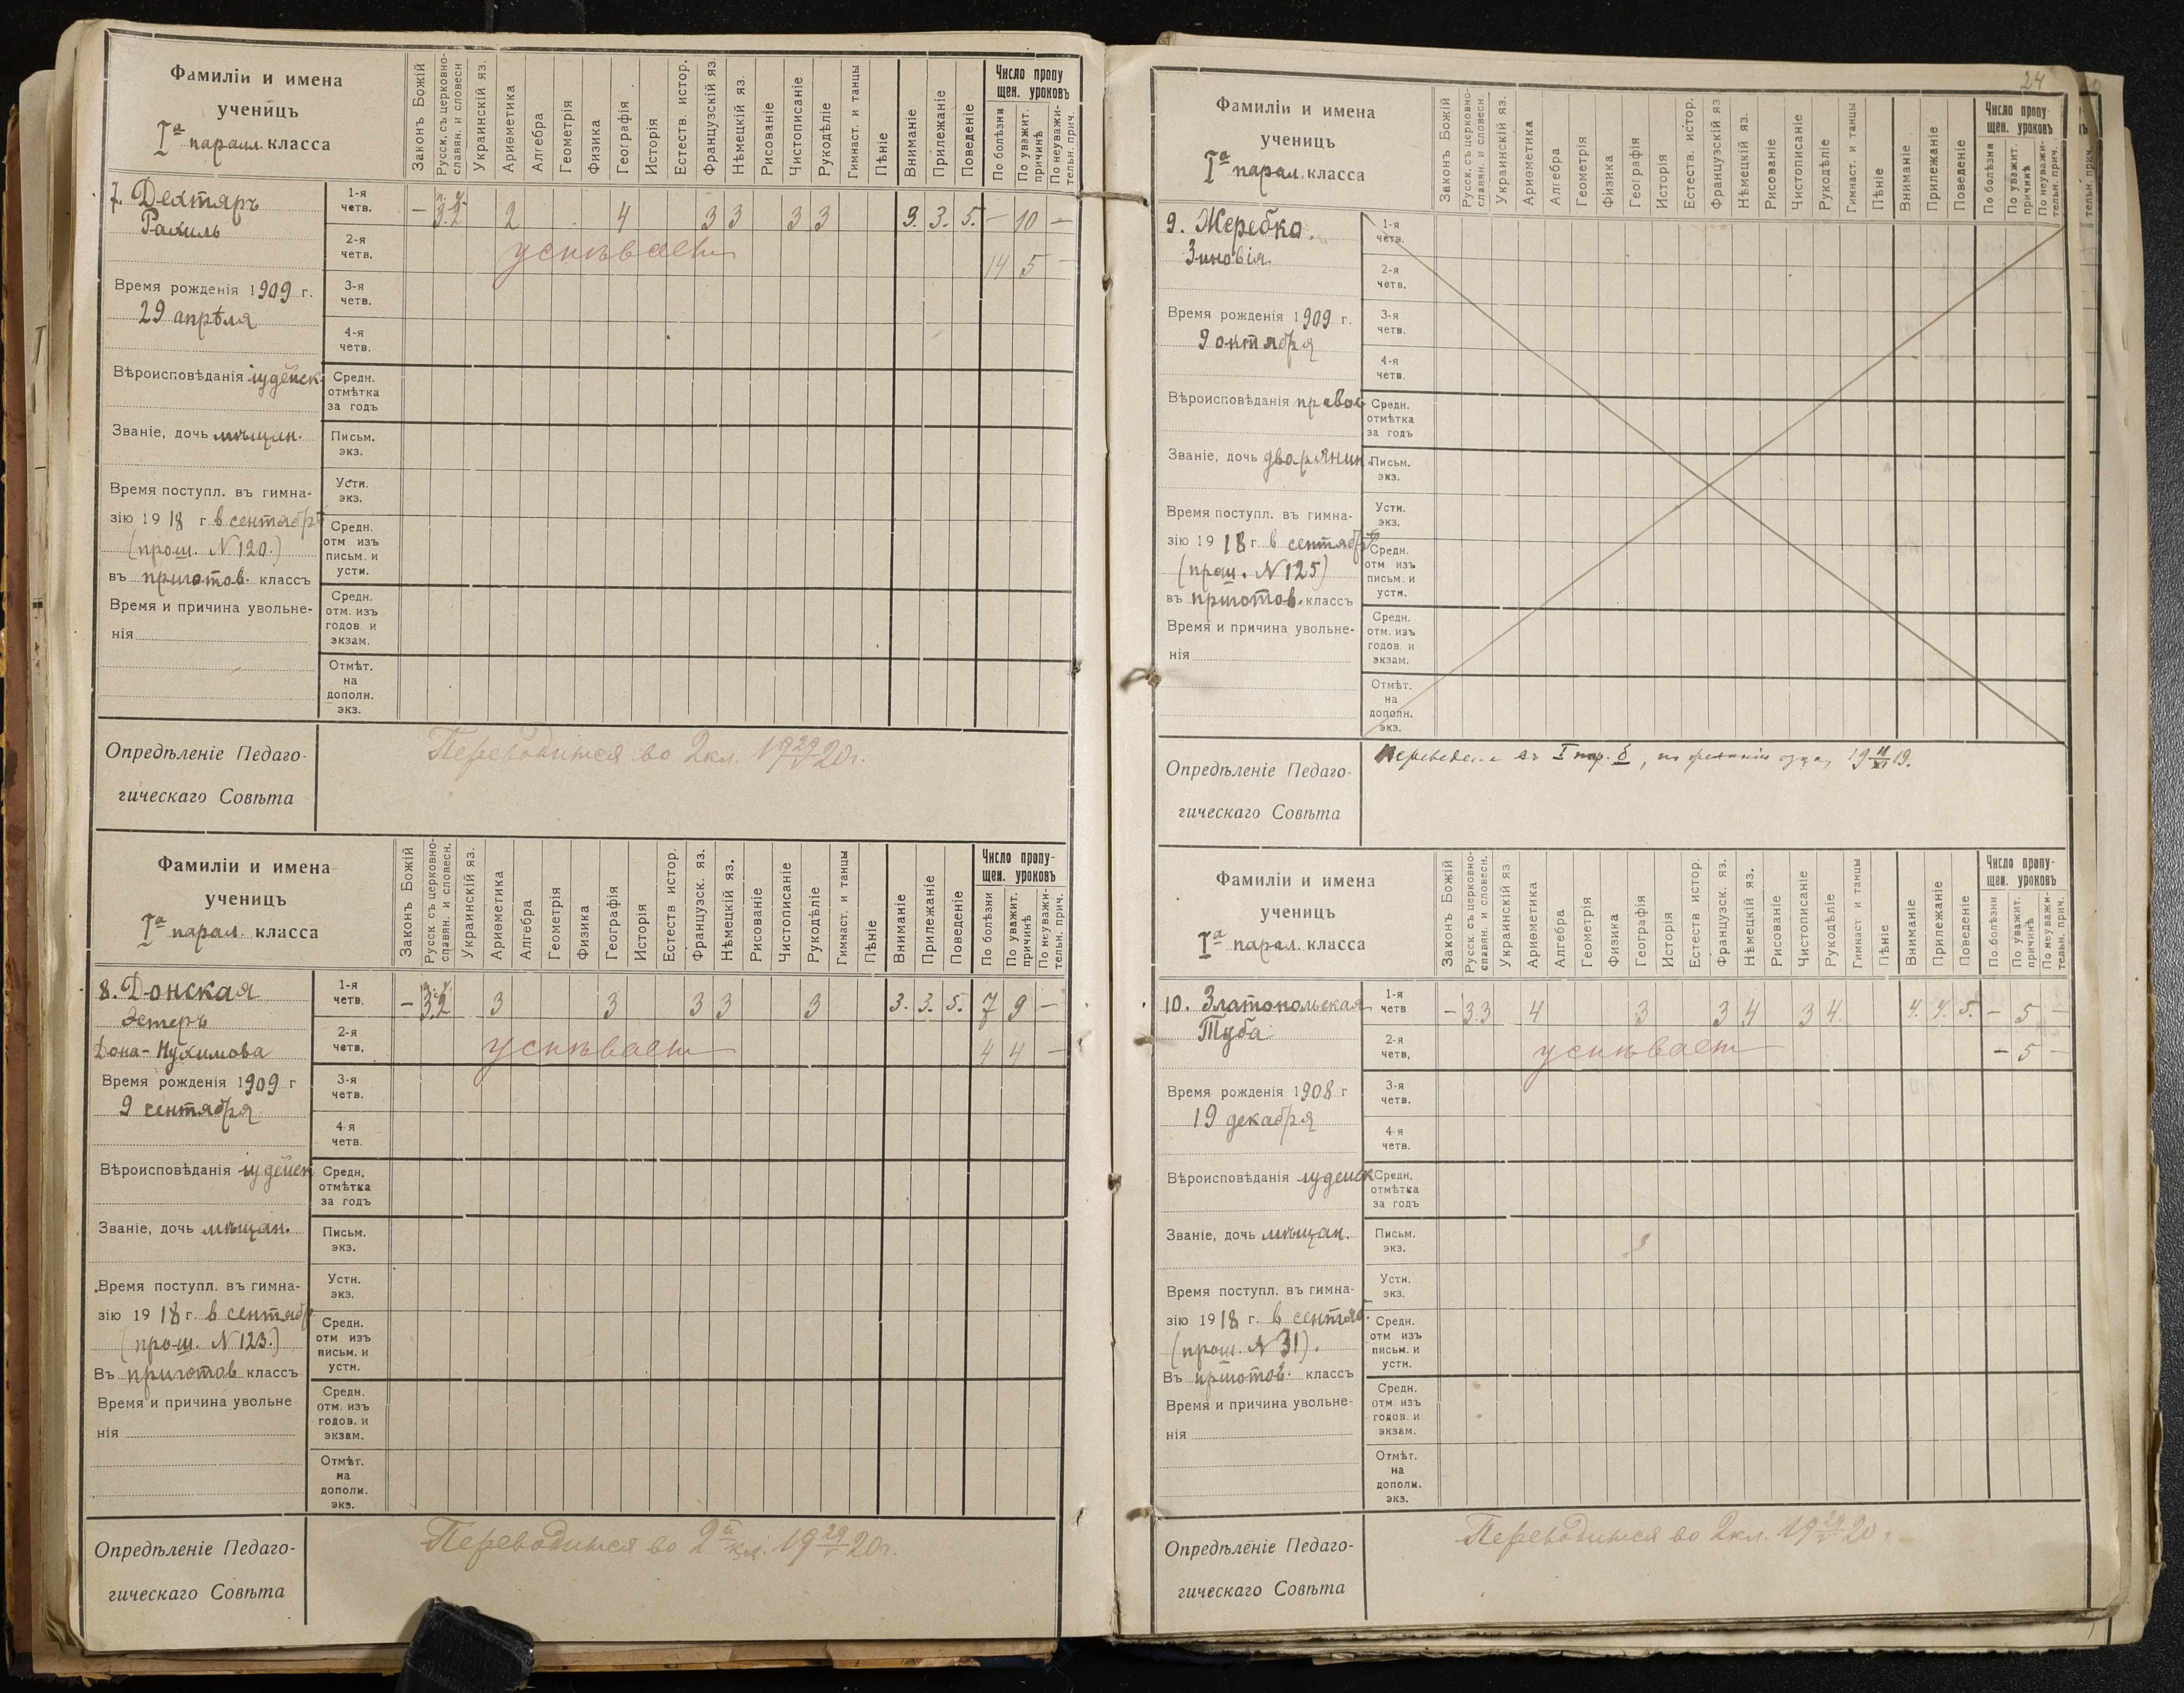 Фамиліи и имена
ученицъ
Iа парал. класса
Законъ Божій
Русск. съ церковно-
славян. и словесн
Украинскій яз.
Ариѳметика
Алгебра
Геометрія
Физика
Географія
Исторія
Естеств. истор.
Французскій яз
Нѣмецкій яз.
Рисованіе
Чистописаніе
Рукодѣліе
Гимнаст. и танцы
Пѣніе
Вниманіе
Прилежаніе
Поведеніе
Число пропу
щен. уроковъ
По болѣзни
По уважит.
причинѣ
По неуважи-
тельн. прич.
7. Дехтяръ
Рахиль
1-я
четв.
– 3.2 2 4 3 3 3 3 3. 3. 5. – 10 –
2-я
четв.
успѣваетъ
14 5 –
Время рожденія 1909 г.
29 апрѣля
3-я
четв.
4-я
четв.
Вѣроисповѣданія іудейск
Средн.
отмѣтка
за годъ
Званіе, дочь мѣщан.
Письм.
экз.
Время поступл. въ гимна-
зію 1918 г. в сентябрѣ
(прош. N 120.)
въ приготов. классъ
Устн.
экз.
Средн.
отм изъ
письм. и
устн.
Время и причина увольне-
нія
Средн.
отм. изъ
годов. и
экзам.
Отмѣт.
на
дополн.
экз.
Опредѣленіе Педаго-
гическаго Совѣта
Переводится во 2 кл. 19 29/V 20 г.
Фамиліи и имена
ученицъ
Iа парал. класса
Законъ Божій
Русск. съ церковно-
славян. и словесн.
Украинскій яз.
Ариѳметика
Алгебра
Геометрія
Физика
Географія
Исторія
Естеств истор.
Французск. яз.
Нѣмецкій яз.
Рисованіе
Чистописаніе
Рукодѣліе
Гимнаст. и танцы
Пѣніе
Вниманіе
Прилежаніе
Поведеніе
Число пропу-
щен. уроковъ
По болѣзни
По уважит.
причинѣ
По неуважи-
тельн. прич.
8. Донская
Эстеръ
Дона-Нухимова
1-я
четв.
– 3.2 3 3 3 3 3 3. 3. 5. 7 9 –
2-я
четв.
успѣваетъ
4 4 –
Время рожденія 1909 г
9 сентября
3-я
четв.
4-я
четв.
Вѣроисповѣданія іудейск
Средн.
отмѣтка
за годъ
Званіе, дочь мѣщан.
Письм.
экз.
Время поступл. въ гимна-
зію 1918 г. в сентябр
(прош. N 123.)
Въ приготов классъ
Устн.
экз.
Средн.
отм изъ
письм. и
устн.
Время и причина увольне
нія
Средн.
отм. изъ
годов. и
экзам.
Отмѣт.
на
дополн.
экз.
Опредѣленіе Педаго-
гическаго Совѣта
Переводится во 2й кл. 19 29/V 20 г.
24
Фамиліи и имена
ученицъ
Iа парал. класса
Законъ Божій
Русск. съ церковно-
славян. и словесн.
Украинскій яз.
Ариѳметика
Алгебра
Геометрія
Физика
Географія
Исторія
Естеств. истор.
Французскій яз
Нѣмецкій яз.
Рисованіе
Чистописаніе
Рукодѣліе
Гимнаст. и танцы
Пѣніе
Вниманіе
Прилежаніе
Поведеніе
Число пропу-
щен. уроковъ
По болѣзни
По уважит.
причинѣ
По неуважи-
тельн. прич.
9. Жеребко
Зиновія
1-я
четв.
2-я
четв.
Время рожденія 1909 г.
9 октября
3-я
четв.
4-я
четв.
Вѣроисповѣданія правос
Средн.
отмѣтка
за годъ
Званіе, дочь дворянин.
Письм.
экз.
Время поступл. въ гимна-
зію 1918 г. в сентябрѣ
(прош. N 125)
въ приготов. классъ
Устн.
экз.
Средн.
отм изъ
письм. и
устн.
Время и причина увольне-
нія
Средн.
отм. изъ
годов. и
экзам.
Отмѣт.
на
дополн.
экз.
Опредѣленіе Педаго-
гическаго Совѣта
Переведена въ I пар. б, по желанію отца, 19 11/XI 19.
Фамиліи и имена
ученицъ
Iа парал. класса
Законъ Божій
Русск. съ церковно-
славян. и словесн.
Украинскій яз
Ариѳметика
Алгебра
Геометрія
Физика
Географія
Исторія
Естеств истор.
Французск. яз.
Нѣмецкій яз.
Рисованіе
Чистописаніе
Рукодѣліе
Гимнаст и танцы
Пѣніе
Вниманіе
Прилежаніе
Поведеніе
Число пропу-
щен. уроковъ
По болѣзни
По уважит.
причинѣ
По неуважи-
тельн. прич.
10. Златопольская
Туба
1-я
четв
– 3.3 4 3 3 4 3 4. 4. 4. 5. – 5 –
2-я
четв.
успѣваетъ
– 5 –
Время рожденія 1908 г
19 декабря
3-я
четв.
4-я
четв.
Вѣроисповѣданія іудейск
Средн.
отмѣтка
за годъ
Званіе, дочь мѣщан.
Письм.
экз.
Время поступл. въ гимна-
зію 1918 г. в сентяб.
(прош. N 31).
Въ приготов. классъ
Устн.
экз.
Средн.
отм изъ
письм. и
устн.
Время и причина увольне-
нія
Средн.
отм. изъ
годов. и
экзам.
Отмѣт.
на
дополн.
экз.
Опредѣленіе Педаго-
гическаго Совѣта
Переводится во 2 кл. 19 29/V 20